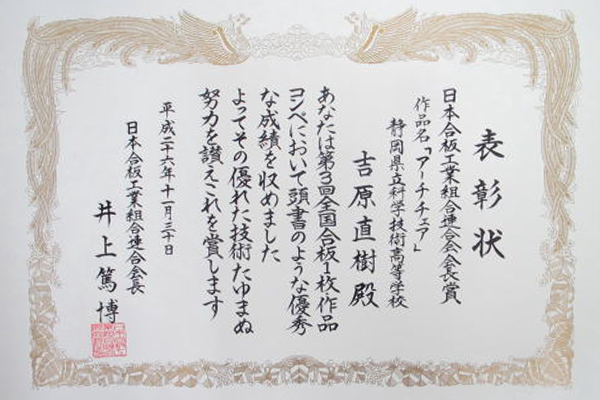 表彰状
日本合板工業組合連合会会長賞
作品名「アーチチェア」
静岡県立科学技術高等学校
吉原直樹殿
あなたは第3回全国合板1枚・作品
コンペにおいて頭書のような優秀
な成績を収めました
よってその優れた技術たゆまぬ
努力を讃えこれを賞します
平成二十六年十一月三十日
日本合板工業組合連合会会長
井上篤博